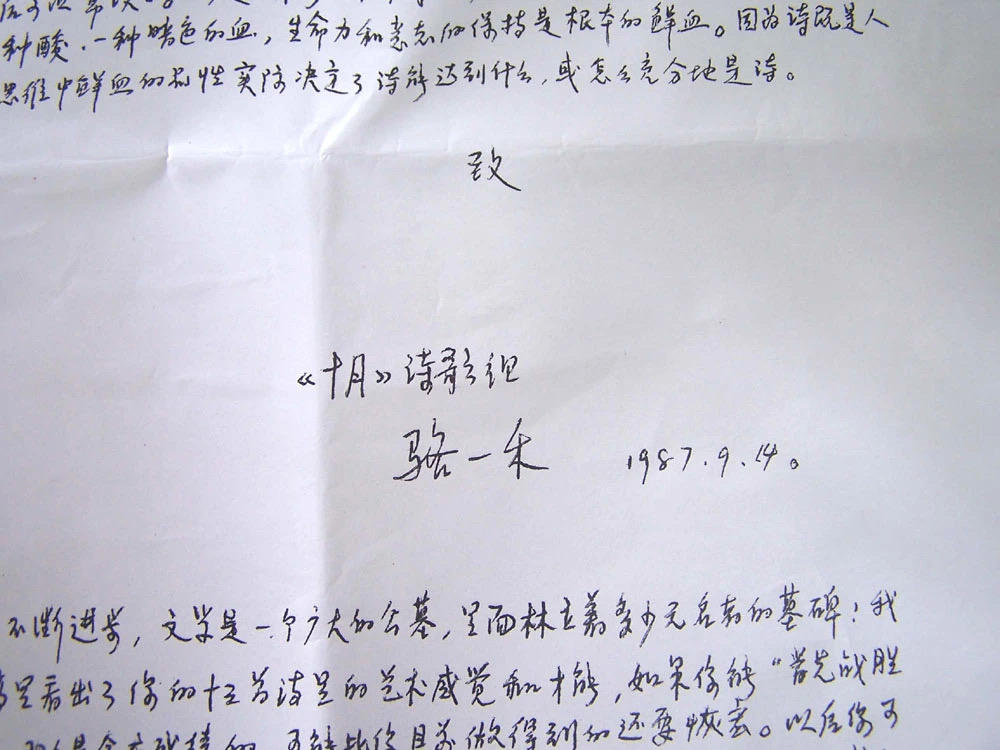 种酸,一种暗色的血,生命力和意志的保持是根本的鲜血。因为诗既是人
思维中鲜血的品性实际决定了诗能达到什么,或怎么充分地是诗。
致
《十月》诗歌组
骆一禾 1987.9.14。
不断进步,文学是一个广大的公墓,里面林立着多少无名者的墓碑!我
里看出了你的十三首诗里的艺术感觉和才能,如果你能“首先战胜
可能比你目前做得到的还要恢宏。以后你可